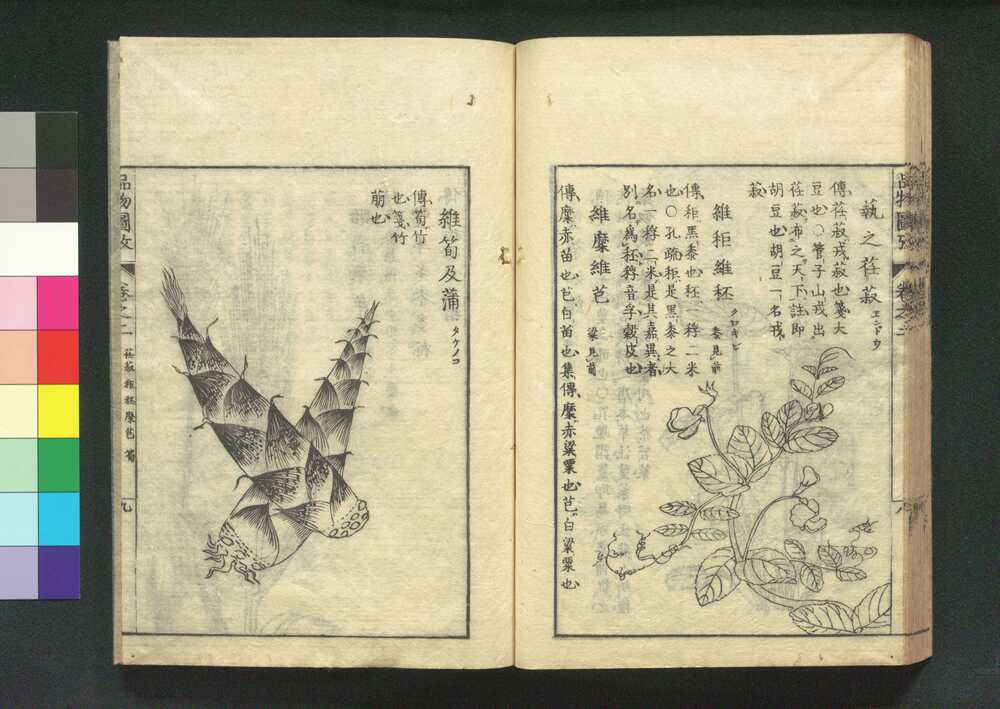 蓺之荏菽 エンドウ
傳荏菽戎菽也箋大
豆也○管子山戎出
荏菽布之天下註即
胡豆也胡豆一名戎
菽
維秬維秠 クロキビ 黍見前
傳秬黑黍也秠一稃二米
也○孔疏秬是黑黍之大
名一稃二米是其嘉異者
別名為秠稃音孚穀皮也
維穈維芑 粱見前
傳穈赤苗也芑白苗也集傳穈赤粱粟也芑白粱粟也
品物圖攷 卷之二
維筍及蒲 タケノコ
傳筍竹
也箋竹
萠也
品物圖攷 卷之二 荏菽 秬秠 穈芑 筍 九